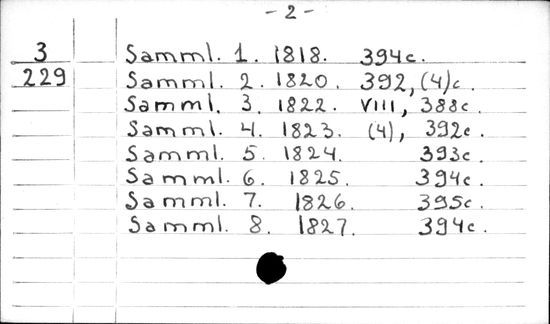 - 2 -
3 Samml. 1. 1818. 394c.
229 Samml. 2. 1820. 392, (4)c.
Samml. 3. 1822. VIII, 388c.
Samml. 4. 1823. (4), 392c.
Samml. 5. 1824. 393c.
Samml. 6. 1825. 394c.
Samml. 7. 1826. 395c.
Samml. 8. 1827. 394c.